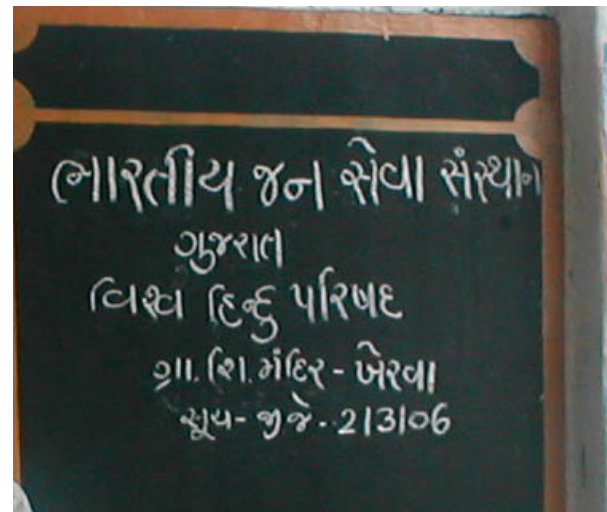 ભારતીય જન સેવા સંસ્થાન
ગુજરાત
વિશ્વ હિન્દુ પરિષદ
ગ્રા. શિ. મંદિર - ખેરવા
સૂચ - જીજે - 2/3/06